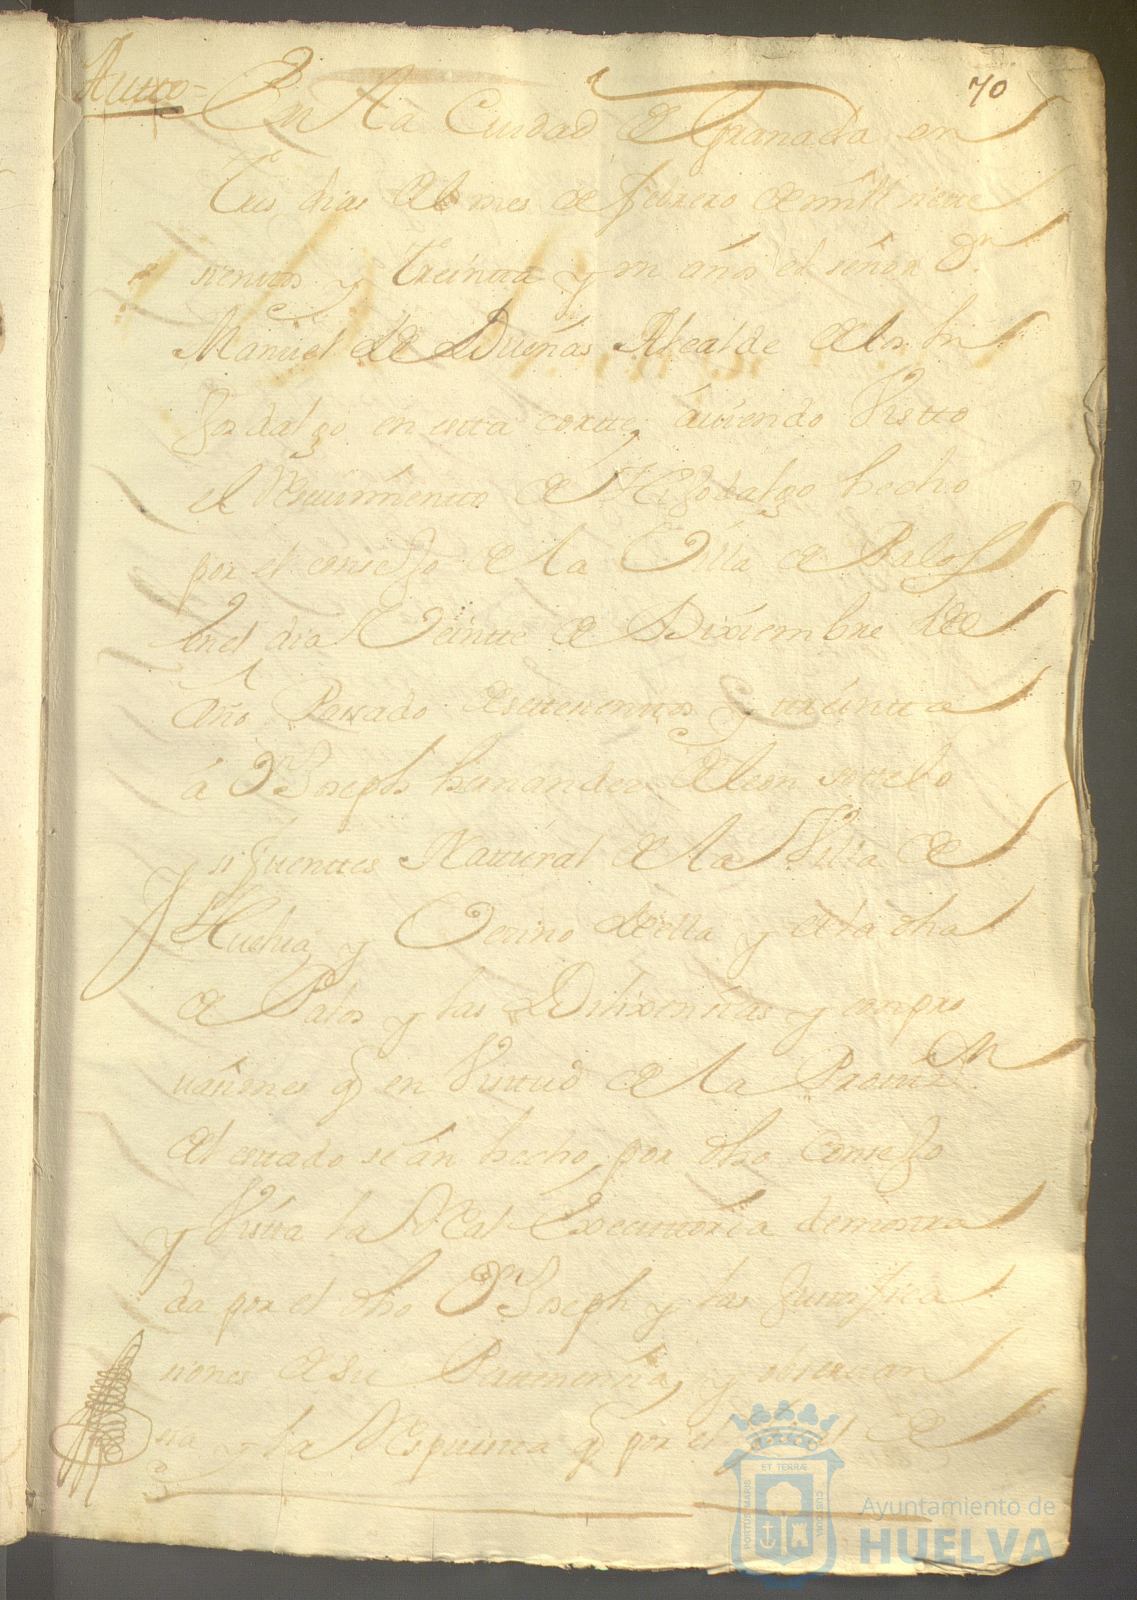 70
Autto = En la Ciudad de Granada en
tres dias del mes de febrero de mill siette
sientos y treintta y un años el señor Dn
Manuel de Dueñas Alcalde de los hi
Josdalgo en estta cortte, auiendo Vistto
el Reciuimientto de HiJodalgo hecho
por el conseJo de la Villa de Palos
en el dia Veintte de Diziembre del
Año Passado de settesientos y treintta
á Dn Joseph hernandez de leon sottelo
si fuenttes Nattural de la Villa de
Huelua, y Vezino de ella y de la dha
de Palos y las Dilixensias y compro
uasiones q en Virttud de la Prouizn
del conttado se án hecho, por dho ConseJo
y Vistta la Real Executtoria demostra
da por el dho Dn Joseph y las Justtifica
siones de su Patternensia, y obseruan
sia y la Respuestta q por el fiscal de
PORTUS MARIS ET TERRÆ CUSTODIA
Ayuntamiento de
HUELVA